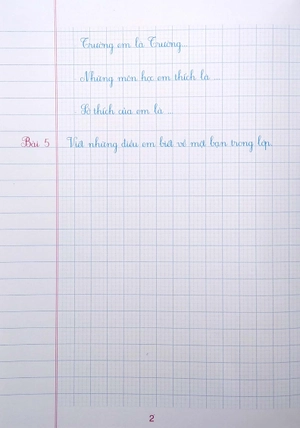 Trường em là Trường...
Những môn học em thích là ...
Sở thích của em là ...
Bài 5 Viết những điều em biết về một bạn trong lớp.
2